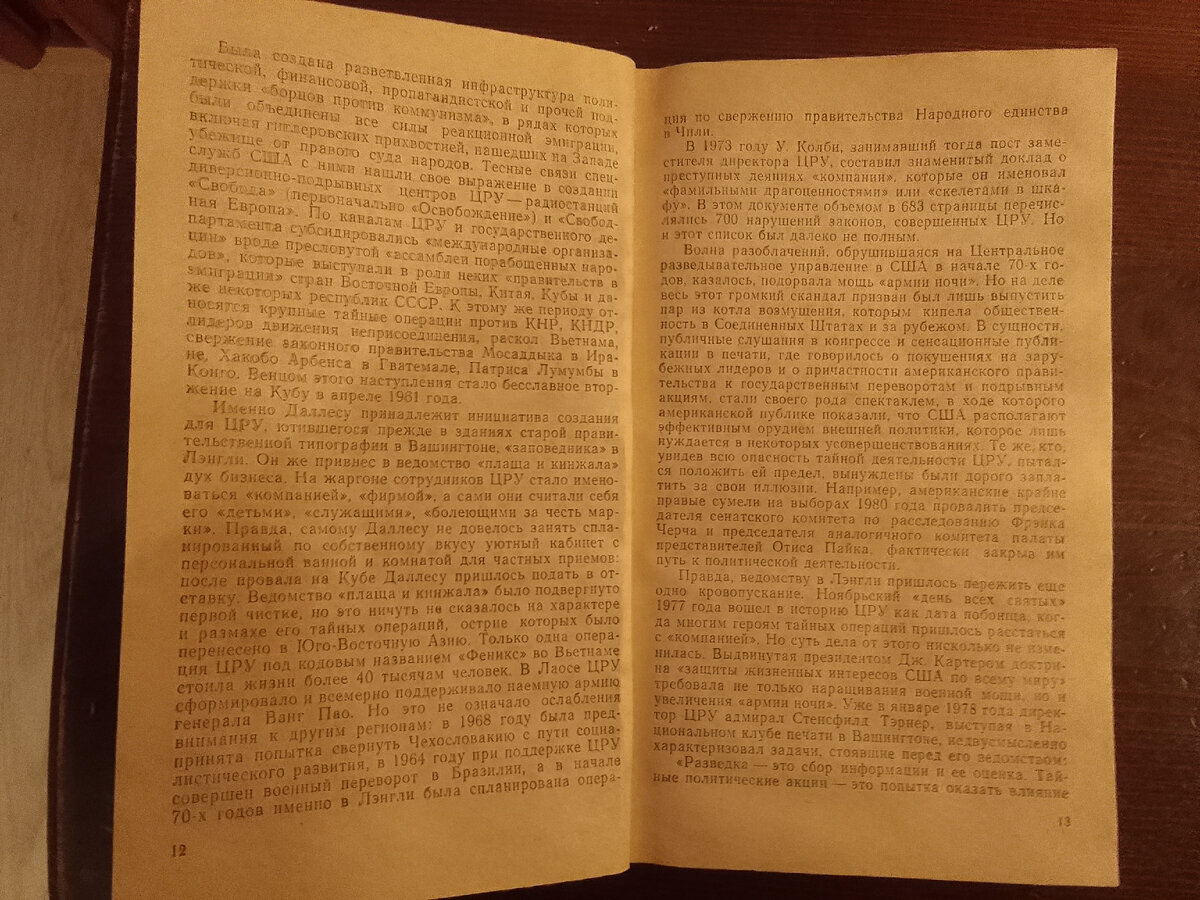 Была создана разветвленная инфраструктура поли-
тической, финансовой, пропагандистской и прочей под-
держки «борцов против коммунизма», в рядах которых
были объединены все силы реакционной эмиграции,
включая гитлеровских прихвостней, нашедших на Западе
убежище от правого суда народов. Тесные связи спец-
служб США с ними нашли свое выражение в создании
диверсионно-подрывных центров ЦРУ — радиостанций
«Свобода» (первоначально «Освобождение») и «Свобод-
ная Европа». По каналам ЦРУ и государственного де-
партамента субсидировались «международные организа-
ции» вроде пресловутой «ассамблеи порабощенных наро-
дов», которые выступали в роли неких «правительств в
эмиграции» стран Восточной Европы, Китая, Кубы и да-
же некоторых республик СССР. К этому же периоду от-
носятся крупные тайные операции против КНР, КНДР,
лидеров движения неприсоединения, раскол Вьетнама,
свержение законного правительства Мосаддыка в Ира-
не, Хакобо Арбенса в Гватемале, Патриса Лумумбы в
Конго. Венцом этого наступления стало бесславное втор-
жение на Кубу в апреле 1961 года.
Именно Даллесу принадлежит инициатива создания
для ЦРУ, ютившегося прежде в зданиях старой прави-
тельственной типографии в Вашингтоне, «заповедника» в
Лэнгли. Он же привнес в ведомство «плаща и кинжала»
дух бизнеса. На жаргоне сотрудников ЦРУ стало имено-
ваться «компанией», «фирмой», а сами они считали себя
его «детьми», «служащими», «болеющими за честь мар-
ки». Правда, самому Даллесу не довелось занять спла-
нированный по собственному вкусу уютный кабинет с
персональной ванной и комнатой для частных приемов:
после провала на Кубе Даллесу пришлось подать в от-
ставку. Ведомство «плаща и кинжала» было подвергнуто
первой чистке, но это ничуть не сказалось на характере
и размахе его тайных операций, острие которых было
перенесено в Юго-Восточную Азию. Только одна опера-
ция ЦРУ под кодовым названием «Феникс» во Вьетнаме
стоила жизни более 40 тысячам человек. В Лаосе ЦРУ
сформировало и всемерно поддерживало наемную армию
генерала Ванг Пао. Но это не означало ослабления
внимания к другим регионам: в 1968 году была пред-
принята попытка свернуть Чехословакию с пути социа-
листического развития, в 1964 году при поддержке ЦРУ
совершен военный переворот в Бразилии, а в начале
70-х годов именно в Лэнгли была спланирована опера-
12
ция по свержению правительства Народного единства
в Чили.
В 1973 году У. Колби, занимавший тогда пост заме-
стителя директора ЦРУ, составил знаменитый доклад о
преступных деяниях «компании», которые он именовал
«фамильными драгоценностями» или «скелетами в шка-
фу». В этом документе объемом в 683 страницы перечис-
лялись 700 нарушений законов, совершенных ЦРУ. Но
и этот список был далеко не полным.
Волна разоблачений, обрушившаяся на Центральное
разведывательное управление в США в начале 70-х го-
дов, казалось, подорвала мощь «армии ночи». Но на деле
весь этот громкий скандал призван был лишь выпустить
пар из котла возмущения, которым кипела обществен-
ность в Соединенных Штатах и за рубежом. В сущности,
публичные слушания в конгрессе и сенсационные публи-
кации в печати, где говорилось о покушениях на зару-
бежных лидеров и о причастности американского прави-
тельства к государственным переворотам и подрывным
акциям, стали своего рода спектаклем, в ходе которого
американской публике показали, что США располагают
эффективным орудием внешней политики, которое лишь
нуждается в некоторых усовершенствованиях. Те же, кто,
увидев всю опасность тайной деятельности ЦРУ, пытал-
ся положить ей предел, вынуждены были дорого запла-
тить за свои иллюзии. Например, американские крайне
правые сумели на выборах 1980 года провалить предсе-
дателя сенатского комитета по расследованию Фрэнка
Черча и председателя аналогичного комитета палаты
представителей Отиса Пайка, фактически закрыв им
путь к политической деятельности.
Правда, ведомству в Лэнгли пришлось пережить еще
одно кровопускание. Ноябрьский «день всех святых»
1977 года вошел в историю ЦРУ как дата побоища, ког-
да многим героям тайных операций пришлось расстаться
с «компанией». Но суть дела от этого нисколько не изме-
нилась. Выдвинутая президентом Дж. Картером доктри-
на «защиты жизненных интересов США по всему миру»
требовала не только наращивания военной мощи, но и
увеличения «армии ночи». Уже в январе 1978 года дирек-
тор ЦРУ адмирал Стенсфилд Тэрнер, выступая в На-
циональном клубе печати в Вашингтоне, недвусмысленно
характеризовал задачи, стоявшие перед его ведомством:
«Разведка — это сбор информации и ее оценка. Тай-
ные политические акции — это попытка оказать влияние
13